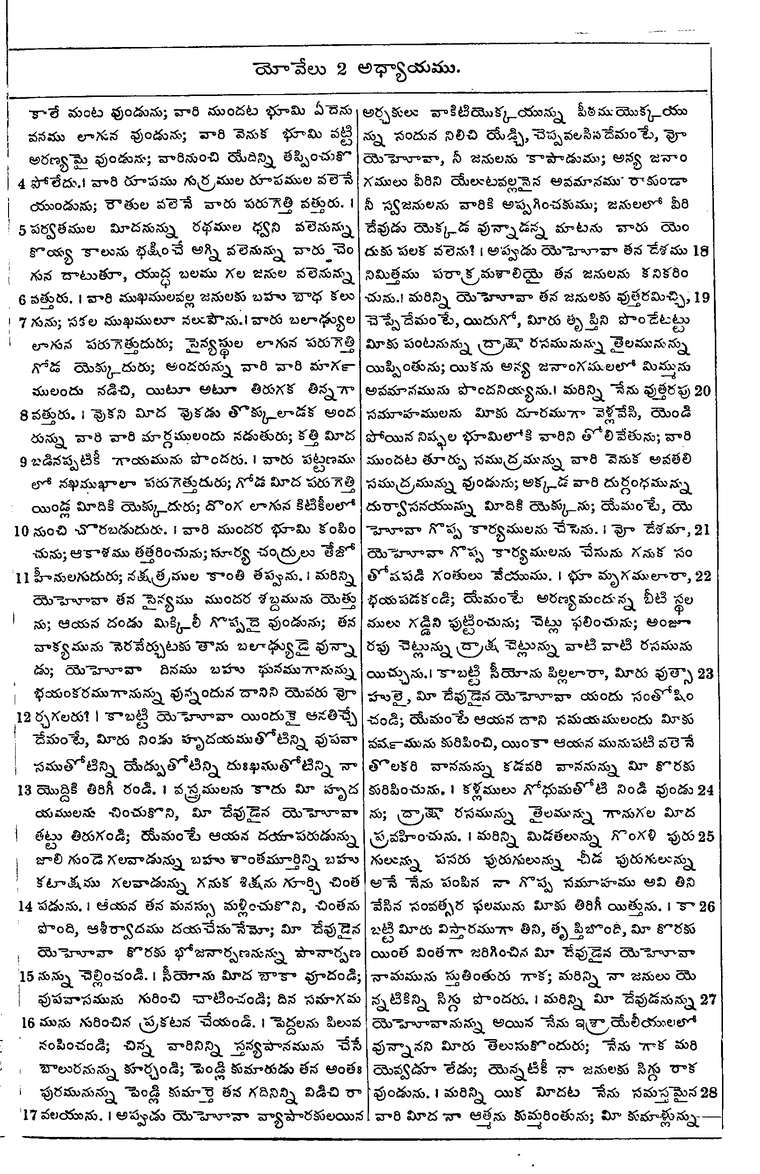 యోవేలు 2 అధ్యాయము.
కాలే మంట వుండును; వారి ముందట భూమి ఏదెను
వనము లాగున వుండును; వారి వెనుక భూమి వట్టి
అరణ్యమై వుండును; వారినుంచి యేదిన్ని తప్పించుకో
4 పోలేదు. । వారి రూపము గుర్రముల రూపముల వలెనే
యుండును; రౌతుల వలెనే వారు పరుగెత్తి వత్తురు. ।
5 పర్వతముల మీదనున్ను రథముల ధ్వని వలెనున్ను
కొయ్య కాలును భక్షించే అగ్ని వలెనున్ను వారు చెం
గున దాటుతూ, యుద్ధ బలము గల జనుల వలెనున్ను
6 వత్తురు. । వారి ముఖములవల్ల జనులకు బహు బాధ కలు
7 గును; సకల ముఖములూ నలుపౌను. । వారు బలాఢ్యుల
లాగున పరుగెత్తుదురు; సైన్యస్థుల లాగున పరుగెత్తి
గోడ యెక్కుదురు; అందరున్ను వారి వారి మార్గ
ములందు నడిచి, యిటూ అటూ తిరుగక తిన్నగా
8 వత్తురు. । వొకని మీద వొకడు తొక్కులాడక అంద
రున్ను వారి వారి మార్గములందు నడుతురు; కత్తి మీద
9 బడినప్పటికీ గాయమును పొందరు. । వారు పట్టణము
లో నఖముఖాలా పరుగెత్తుదురు; గోడ మీద పరుగెత్తి
యిండ్ల మీదికి యెక్కుదురు; దొంగ లాగున కిటికీలలో
10 నుంచి చొరబడుదురు. । వారి ముందర భూమి కంపిం
చును; ఆకాశము తత్తరించును; సూర్య చంద్రులు తేజో
11 హీనులగుదురు; నక్షత్రముల కాంతి తప్పును. । మరిన్ని
యెహోవా తన సైన్యము ముందర శబ్దమును యెత్తు
ను; ఆయన దండు మిక్కిలీ గొప్పదై వుండును; తన
వాక్యమును నెరవేర్చుటకు తాను బలాఢ్యుడై వున్నా
డు; యెహోవా దినము బహు ఘనముగానున్ను
భయంకరముగానున్ను వున్నందున దానిని యెవరు వో
12 ర్చగలరు? । కాబట్టి యెహోవా యిందుకై ఆనతిచ్చే
దేమంటే, మీరు నిండు హృదయముతోటిన్ని వుపవా
సముతోటిన్ని యేడ్పుతోటిన్ని దుఃఖముతోటిన్ని నా
13 యొద్దికి తిరిగీ రండి. । వస్త్రములను కాదు మీ హృద
యములను చించుకొని, మీ దేవుడైన యెహోవా
తట్టు తిరుగండి; యేమంటే ఆయన దయాపరుడున్ను
జాలి గుండె గలవాడున్ను బహు శాంతమూర్తిన్ని బహు
కటాక్షము గలవాడున్ను గనుక శిక్షను గూర్చి చింత
14 పడును. । ఆయన తన మనస్సు మళ్లించుకొని, చింతను
పొంది, ఆశీర్వాదము దయచేసునేమో; మీ దేవుడైన
యెహోవా కొరకు భోజనార్పణనున్ను పానార్పణ
15 నున్ను చెల్లించండి. । సీయోను మీద బాకా వూదండి;
వుపవాసమును గురించి చాటించండి; దిన సమాగమ
16 మును గురించిన ప్రకటన చేయండి. । పెద్దలను పిలువ
నంపించండి; చిన్న వారినిన్ని స్తన్యపానమును చేసే
బాలురనున్ను కూర్చండి; పెండ్లి కుమారుడు తన అంతః
పురమునున్ను పెండ్లి కుమార్తె తన గదినిన్ని విడిచి రా
17 వలయును. । అప్పుడు యెహోవా వ్యాపారకులయిన
అర్చకులు వాకిటియొక్కయున్ను పీఠముయొక్కయు
న్ను సందున నిలిచి యేడ్చి, చెప్పవలసినదేమంటే, వో
యెహోవా, నీ జనులను కాపాడుము; అన్య జనాం
గములు వీరిని యేలుటవల్లనైన అవమానము రాకుండా
నీ స్వజనులను వారికి అప్పగించకుము; జనులలో వీరి
దేవుడు యెక్కడ వున్నాడన్న మాటను వారు యెం
దుకు పలక వలెను? । అప్పుడు యెహోవా తన దేశము 18
నిమిత్తము పరాక్రమశాలియై తన జనులను కనికరిం
చును. । మరిన్ని యెహోవా తన జనులకు వుత్తరమిచ్చి, 19
చెప్పేదేమంటే, యిదుగో, మీరు తృప్తిని పొందేటట్టు
మీకు పంటనున్ను ద్రాక్షా రసమునున్ను తైలమునున్ను
యిప్పింతును; యికను అన్య జనాంగములలో మిమ్మును
అవమానమును పొందనియ్యను. । మరిన్ని నేను వుత్తరపు 20
సమూహములను మీకు దూరముగా వెళ్లవేసి, యెండి
పోయిన నిష్ఫల భూమిలోకి వారిని తోలివేతును; వారి
ముందట తూర్పు సముద్రమున్ను వారి వెనుక అవతలి
సముద్రమున్ను వుండును; అక్కడ వారి దుర్గంధమున్ను
దుర్వాసనయున్ను మీదికి యెక్కును; యేమంటే, యె
హోవా గొప్ప కార్యములను చేసెను. । వో దేశమా, 21
యెహోవా గొప్ప కార్యములను చేసును గనుక సం
తోషపడి గంతులు వేయుము. । భూ మృగములారా, 22
భయపడకండి; యేమంటే అరణ్యమందున్న బీటి స్థల
ములు గడ్డిని పుట్టించును; చెట్లు ఫలించును; అంజూ
రపు చెట్లున్ను ద్రాక్ష చెట్లున్ను వాటి వాటి రసమును
యిచ్చును. । కాబట్టి సీయోను పిల్లలారా, మీరు వుత్సా 23
హులై, మీ దేవుడైన యెహోవా యందు సంతోషిం
చండి; యేమంటే ఆయన దాని సమయములందు మీకు
వర్షమును కురిపించి, యింకా ఆయన మునుపటి వలెనే
తొలకరి వాననున్ను కడవరి వాననున్ను మీ కొరకు
కురిపించును. । కళ్లములు గోధుమతోటి నిండి వుండు 24
ను; ద్రాక్షా రసమున్ను తైలమున్ను గానుగల మీద
ప్రవహించును. । మరిన్ని మిడతలున్ను గొంగళి పురు 25
గులున్ను పసరు పురుగులున్ను చీడ పురుగులున్ను
అనే నేను పంపిన నా గొప్ప సమూహము అవి తిని
వేసిన సంవత్సర ఫలమును మీకు తిరిగీ యిత్తును. । కా 26
బట్టి మీరు విస్తారముగా తిని, తృప్తిబొంది, మీ కొరకు
యింత వింతగా జరిగించిన మీ దేవుడైన యెహోవా
నామమును స్తుతింతురు గాక; మరిన్ని నా జనులు యె
న్నటికిన్ని సిగ్గు పొందరు. । మరిన్ని మీ దేవుడనున్ను 27
యెహోవానున్ను అయిన నేను ఇశ్రాయేలీయులలో
వున్నానని మీరు తెలుసుకొందురు; నేను గాక మరి
యెవ్వడూ లేడు; యెన్నటికీ నా జనులకు సిగ్గు రాక
వుండును. । మరిన్ని యిక మీదట నేను సమస్తమైన 28
వారి మీద నా ఆత్మను కుమ్మరింతును; మీ కుమాళ్లున్ను